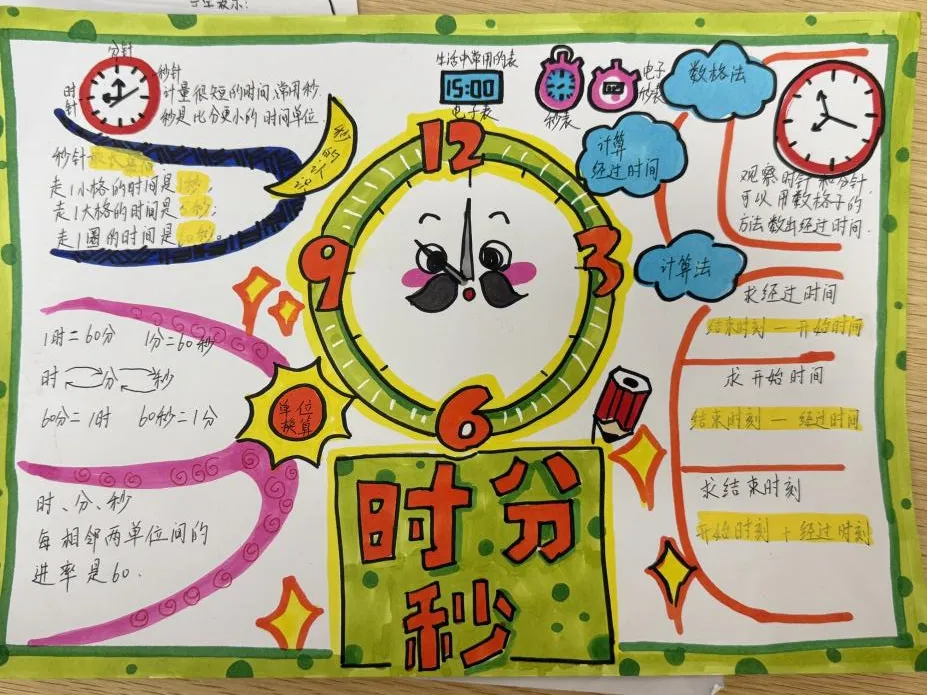 分针
秒针
时
针
计量很短的时间,常用秒.
秒是比分更小的时间单位.
秒针
走1小格的时间是1秒;
走1大格的时间是5秒;
走1圈的时间是60秒。
生活中常用的表
15:00
电子表
秒表
电子
秒表
数格法
计算
经过时间
观察时针和分针,
可以用数格子的
方法数出经过时间.
计算法
求经过时间
结束时刻 — 开始时间
求开始时间
结束时刻 — 经过时间
求结束时刻
开始时刻 + 经过时刻
12
3
6
9
1时=60分 1分=60秒
时 分 秒
60分=1时 60秒=1分
单位
换算
时、分、秒
每相邻两单位间的
进率是60.
时分
秒